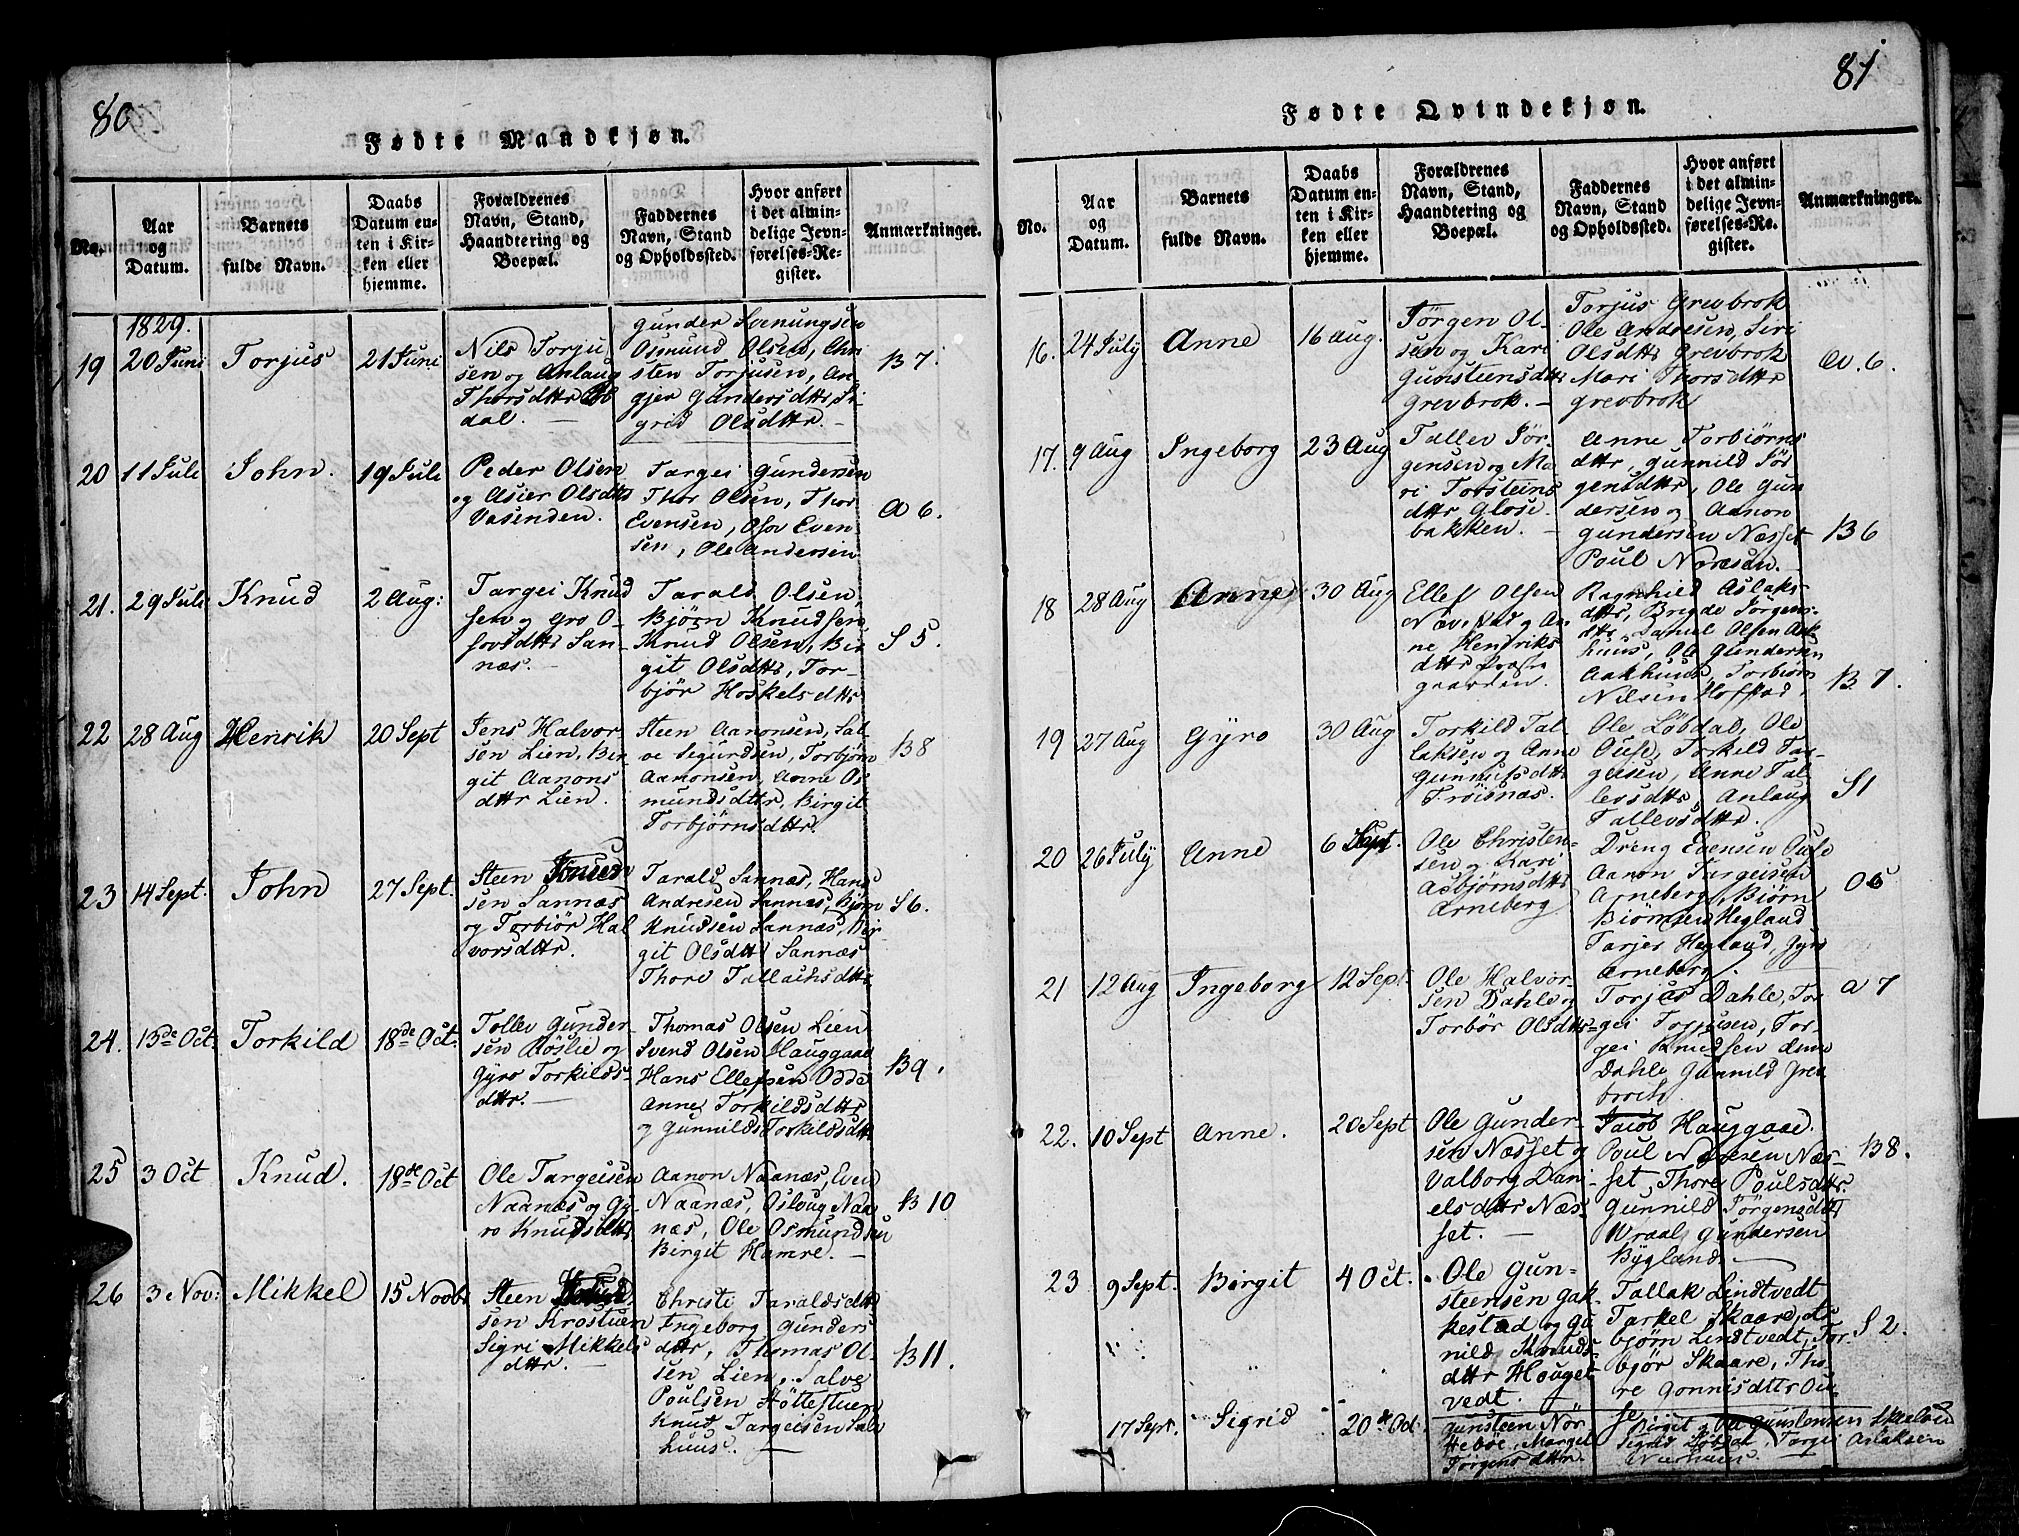 80
Fødte Mandkjøn.
No.
Aar
og
Datum.
Barnets
fulde Navn.
Daabs
Datum en-
ten i Kir-
ken eller
hjemme.
Forældrenes
Navn, Stand,
Haandtering og
Boepæl.
Faddernes
Navn, Stand
og Opholdssted.
Hvor anført
i det almin-
delige Jevn-
førelses-Re-
gister.
Anmærkninger.
1829.
19
20 Juni
Torjus
21 Juni
Nils Torju
sen og Anlaug
Thorsdttr
dal. —
Gunder Svenungsen
Osmund Olsen, Chri
sten Torjusen, An
gjer Gundersdttr Si
grid Olsdttr. —
B 7.
20
11 Juli
John.
19 Juli
Peder Olsen
og Asier Olsdttr
Vasenden.
Targei Gundersen
Thor Olsen, Thor
Evensen, Osov Even
sen, Ole Andersen
A 6.
21.
29 Juli
Knud
2 Aug:
Targei Knud
sen og Gro O-
sovsdttr San-
næs. —
Tarald Olsen,
Bjørn Knudsen
Knud Olsen, Bir
git Olsdttr, Tor-
bjør Hoskelsdttr
S 5.
22
28 Aug
Henrik
20 Sept
Jens Halvor
sen Lien, Bir-
git Aanons
dttr Lien.
Steen Aanonsen, Sal-
ve Sigurdsen, Torbjørn
Aanonsen, Anne Os
mundsdttr, Birgit
Torbjørnsdttr.
B8
23
14 Sept.
John
27 Sept.
Steen Knud
sen Sannæs
og Torbiør Hal
vorsdttr.
Tarald Sannæs, Hans
Andresen Sannæs, Bjørn
Knudsen Sannæs, Bir
git Olsdttr Sannæs
Thore Tallachsdttr
S6.
24.
13de Oct.
Torkild
18de Oct.
Tollev Gunder-
sen Røslie og
Gyro Torkilds-
dttr. —
Thomas Olsen Lien
Svend Olsen Hauggaae
Hans Ellefsen Odde
Anne Torkildsdttr
og Gunnild Torkildsdttr
B9.
25
3 Oct
Knud.
18de Oct
Ole Targeisen
Naanæs og Gy-
ro Knudsdttr
Aanon Naanæs, Even
Naanæs, Oslaug Naa
næs, Ole Osmundsen
Birgit Hamre. —
B 10
26
3 Nov:
Mikkel
15 Novbr
Steen
sen Krostuen
Sigri Mikkels
dttr. —
Christi Taraldsdttr
Ingeborg Gunders
dttr, Thomas Ol-
sen Lien, Salve
Poulsen Høltestuen
Knud Targeisen
huus. —
B11.
81
Fødte Qvindekjøn.
No.
Aar
og
Datum.
Barnets
fulde Navn.
Daabs
Datum en-
ten i Kir-
ken eller
hjemme.
Forældrenes
Navn, Stand,
Haandtering og
Boepæl.
Faddernes
Navn, Stand
og Opholdssted.
Hvor anført
i det almin-
delige Jevn-
førelses-Re-
gister.
Anmærkninger.
16.
24 July
Anne
16 Aug.
Jørgen Ol-
sen og Kari
Gunsteensdttr
Grevbrok. —
Torjus Grevbrok
Ole Andresen, Siri
Olsdttr Grevbrok
Mari Thorsdttr
Grevbrok
A. 6.
17.
9 Aug
Ingeborg
23 Aug
Tallev Jør-
gensen og Ma
ri Torsteins
dttr Glose-
bakken. —
Anne Torbiørns
dttr, Gunnild Jør
gensdttr, Ole Gun
dersen og Aanon
Gundersen Næsset
Poul Noresen. —
B 6
18
28 Aug
Anne
30 Aug
Ellef Olsen
og An
ne Henriks
dttr
gaarden.
Ragnhild Aslaks-
dttr, Brigde Jørgens-
dttr, Daniel Olsen Aak
huus, Ole Gundersen
Aakhuus, Torbiørn
Nilsen Hofstad,
B 7.
19
27 Aug
Gyro
30 Aug
Torkild Tal-
laksen og Anne
Gunnufsdttr
Frøisnæs.
Ole Løbdal, Ole
Ouse, Torkild Tar-
geisen, Anne Tal
levsdttr, Anlaug
Tallevsdttr.
S1
20
26 July
Anne
6 Sept.
Ole Christen-
sen og Kari
Asbjørnsdttr
Arneberg
Dreng Evensen Ouse
Aanon Targeisen
Arneberg, Biørn
Biørnsen Hegland
Tarjer Hegland, Gyro
Arneberg. —
O6
21
12 Aug
Ingeborg
12 Sept.
Ole Halvor-
sen Dahle og
Torbør Olsdttr
Torjus Dahle, Tor
gei Torjusen, Tor-
gei Knudsen
Dahle Gunnild Grev
brok.
A 7
22.
10 Sept
Anne.
20 Sept
Ole Gunder-
sen Næsset og
Valborg Dani-
elsdttr Næs-
set. —
Jacob Hauggaae.
Poul Noresen Næs-
set, Thore Poulsdttr.
Gunnild Jørgensdttr
Wraal Gundersen
Bygland. —
B8.
23
9 Sept.
Birgit
4 Oct.
Ole Gun-
steensen Gak-
kestad og Gu
nild Knuds-
dttr Houget-
vedt.
Tallak Lindtvedt
Tarkel Skaare, As-
bjørn Lindtvedt, Tor-
bjør Skaare, Tho-
re Gonnisdttr Ou-
se.
S 2.
17 Sept.
Sigrid
20de Oct.
Gunsteen Nor
Hebøe, Margit
Jørgensdttr.
Birgit og Ole Gunstensen
Sigrid Løbdal, Torgei Aslaksen